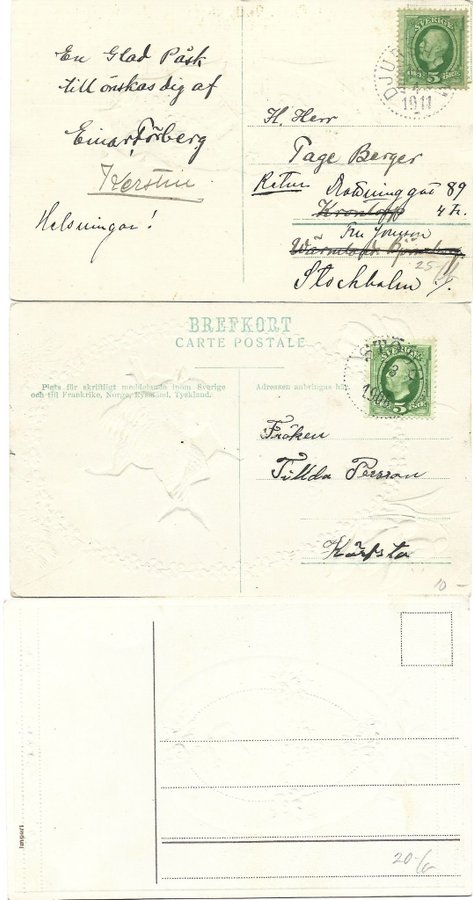 En Glad Påsk
tillönskas dig af
Einar Törberg
Kerstin
Helsningar!
SVERIGE
5
DJUR
1911
H. Herr
Tage Berger
Retur
89
Krontorp 4 tr.
Fru
Stockholm
25
BREFKORT
CARTE POSTALE
Plats för skriftligt meddelande inom Sverige
och till Frankrike, Norge, Ryssland, Tyskland.
Adressen anbringas här.
SVERIGE
5
190
Fröken
Tillda Persson
Kärfsta
10 -
Import
20-